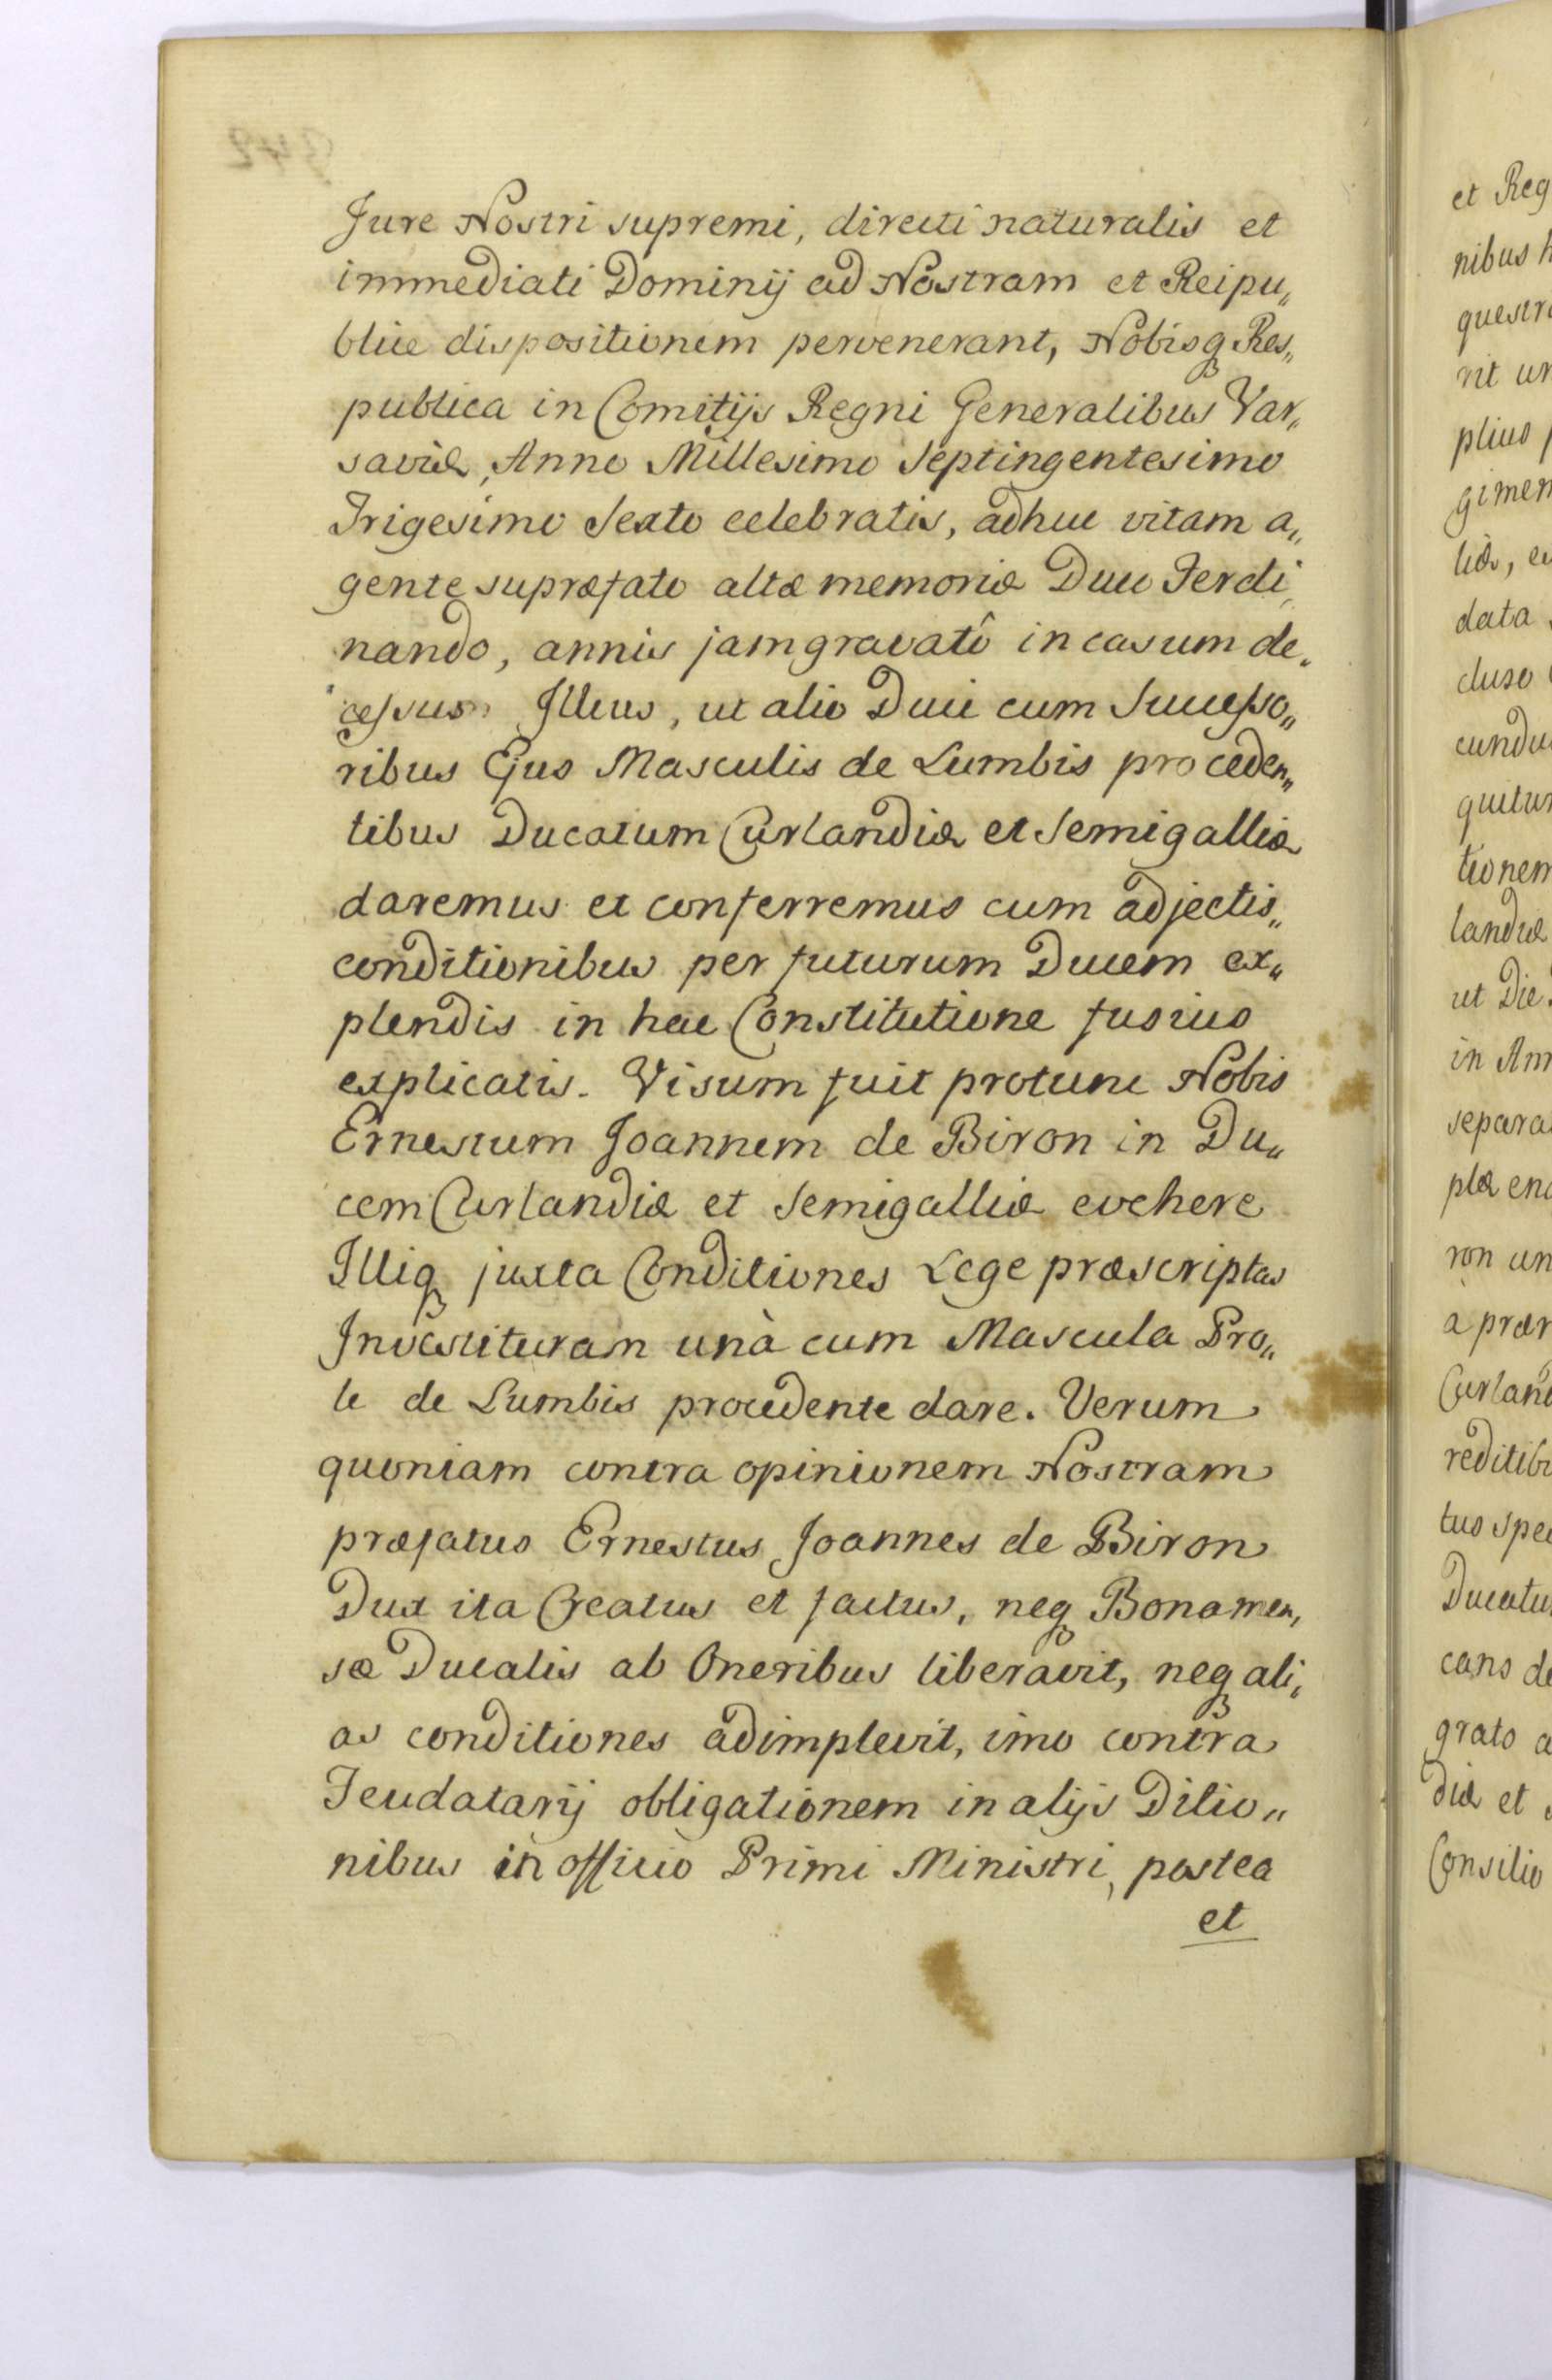 Jure Nostri supremi, directi naturalis et
immediati Dominij ad Nostram et Reipu„
blicæ dispositionem pervenerant, Nobisq Res„
publica in Comitijs Regni Generalibus Var„
saviæ, Anno Millesimo Septingentesimo
Trigesimo Sexto celebratis, adhuc vitam a„
gente supræfato altæ memoriæ Duce Ferdi„
nando, annis jam gravatô in casum de„
cessus Illius, ut alio Duci cum Successo„
ribus Ejus Masculis de Lumbis proceden„
tibus Ducatum Curlandiæ et Semigalliæ
daremus et conferremus cum adjectis„
conditionibus per futurum Ducem ex„
plendis in hac Constitutione fusius
explicatis. Visum fuit protunc Nobis
Ernestum Joannem de Biron in Du„
cem Curlandiæ et Semigalliæ evehere
Illiq juxta Conditiones Lege præscriptas
Investituram unà cum Mascula Pro„
le de Lumbis procedente dare. Verum
quoniam contra opinionem Nostram
præfatus Ernestus Joannes de Biron
Dux ita Creatus et factus, neq Bona men„
sæ Ducalis ab Oneribus liberavit, neq ali„
as conditiones adimplevit, imo contra
Feudatarij obligationem in alijs Ditio„
nibus in officio Primi Ministri, postea
et
et Reg
nibus h
questr
rit un
plius p
gimen
liæ, e
data
cluso
cundu
quitur
tionem
landiæ
ut Die
in Ann
separa
plæ en
ron un
à præ
Curland
reditib
tus spe
Ducatu
cans de
grato a
diæ et
Consilio